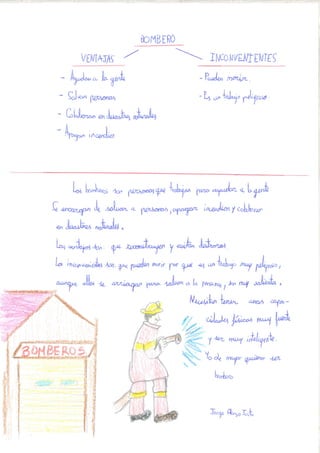 BOMBERO
VENTAJAS
INCONVENIENTES
- Ayudan a la gente
- Salvan personas
- Colaboran en desastres naturales
- Apagan incendios
- Pueden morir.
- Es un trabajo peligroso
Los bomberos son personas que trabajan para ayudar a la gente
Se encargan de salvar a personas, apagar incendios y colaborar
en desastres naturales.
Las ventajas son que reconstruyen y evitan destrozos
Los inconvenientes son que pueden morir por que es un trabajo muy peligroso,
aunque ellos se arriesgan para salvar a la persona, son muy valientes.
Necesitan tener unas capa-
cidades físicas muy fuerte
y ser muy inteligente.
Yo de mayor quiero ser
bombero
BOMBEROS
Jorge